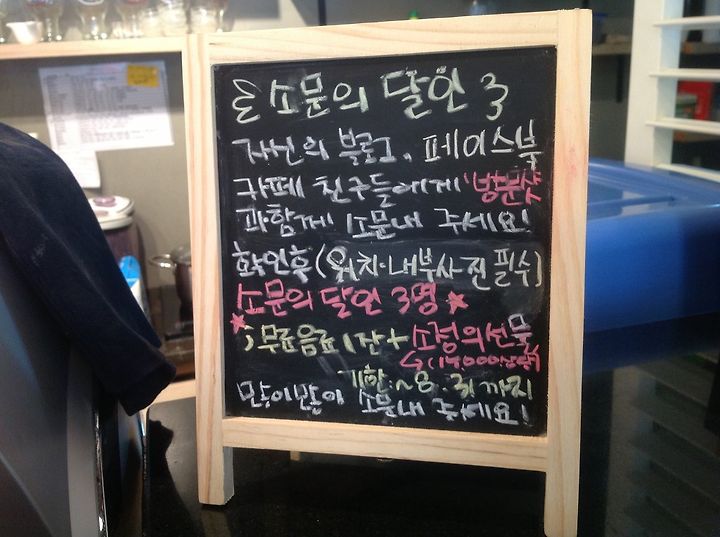 소문의 달인
자신의 블로그, 페이스북
카페 친구들에게 '방문샷'
과함께 소문내 주세요!
확인후(위치·내부사진 필수)
소문의 달인 3명
무료음료 1잔 + 소정의선물
기한 ~8. 31까지
많이많이 소문내 주세요!